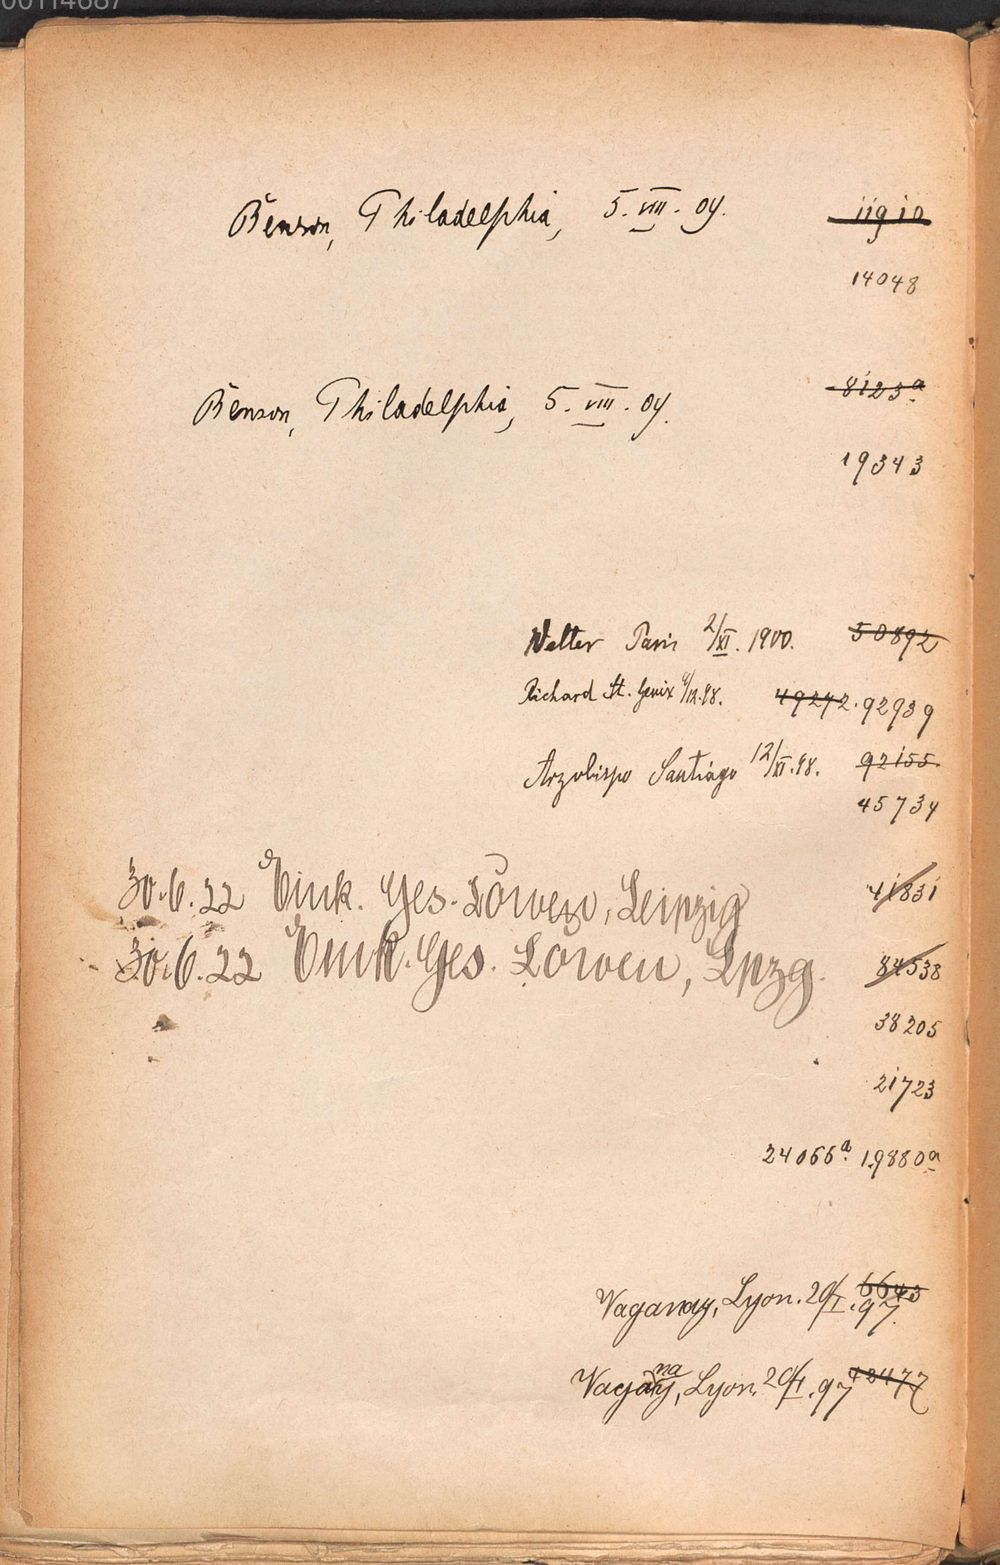 00114687
Benson, Philadelphia, 5. VIII. 04. 11910
14048
Benson, Philadelphia, 5. VIII. 04. 8123a
19343
Welter Paris 2/XI. 1900. 50892
Richard St. 9/12.98. 49272. 92939
Arzobispo Santiago 12/XI.98. 92155.
45734
30.6.22 Eink. Ges. Löwen, Leipzig 41831
30.6.22 Eink. Ges. Löwen, Lpzg. 84538
38205
21723
24066a. 19880a
Vaganay, Lyon. 20/I.97. 6643
Vaganay, Lyon. 20/I.97 42477